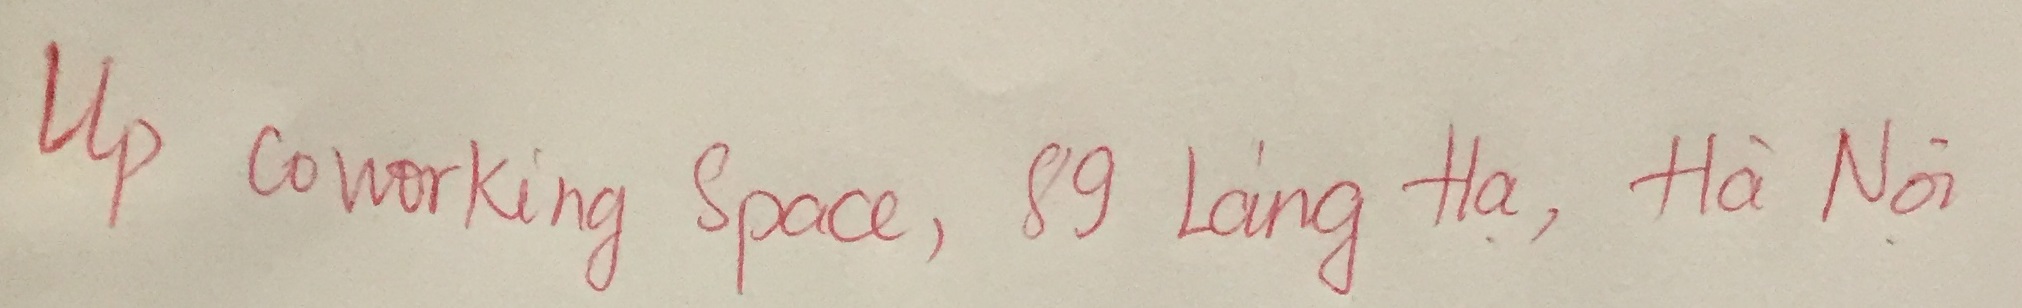 Up coworking Space, 89 Láng Hạ, Hà Nội